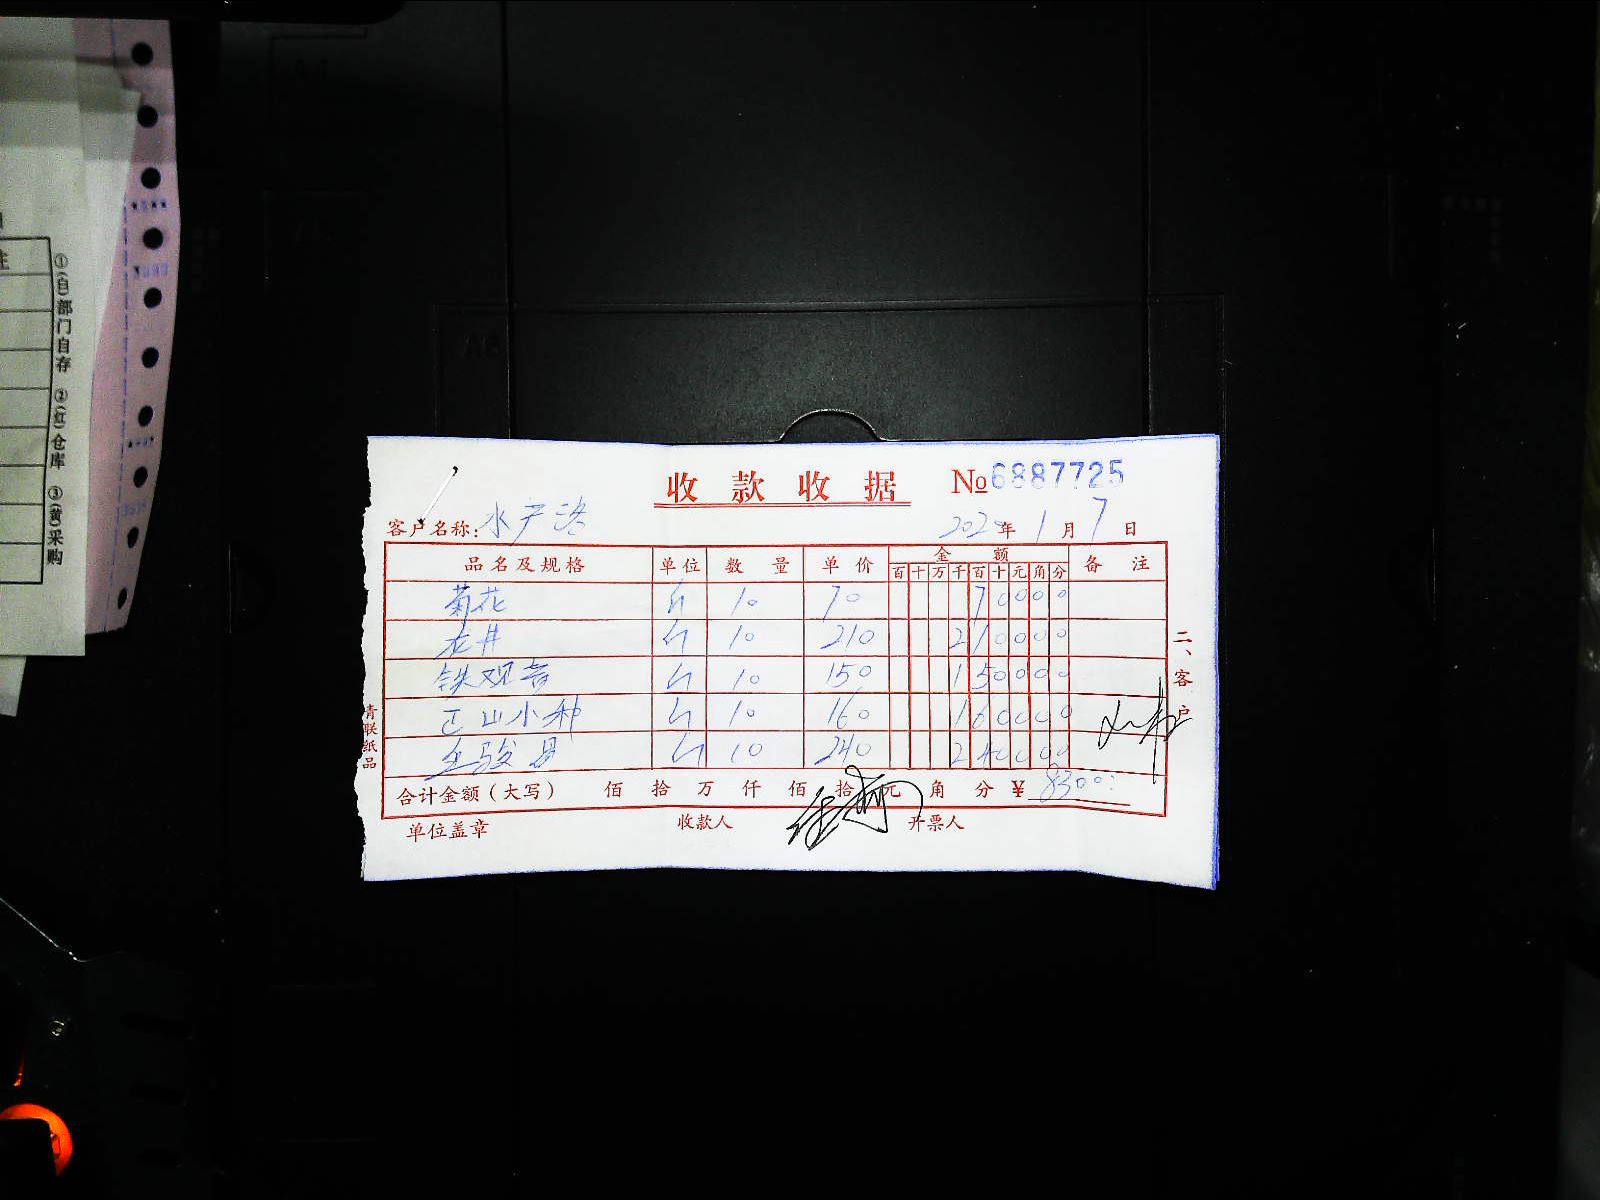 收款收据 №6887725
客户名称: 水产 2020年1月7日
品名及规格 单位 数量 单价 金额 备注
百 十 万 千 百 十 元 角 分
菊花 斤 10 70 70000
龙井 斤 10 210 210000
铁观音 斤 10 150 150000
正山小种 斤 10 160 160000
金骏眉 斤 10 240 240000
合计金额(大写) 佰 拾 万 仟 佰 拾 元 角 分 ¥8300
单位盖章 收款人 开票人
二、客户
青联纸品
①(白)部门自存 ②(红)仓库 ③(黄)采购